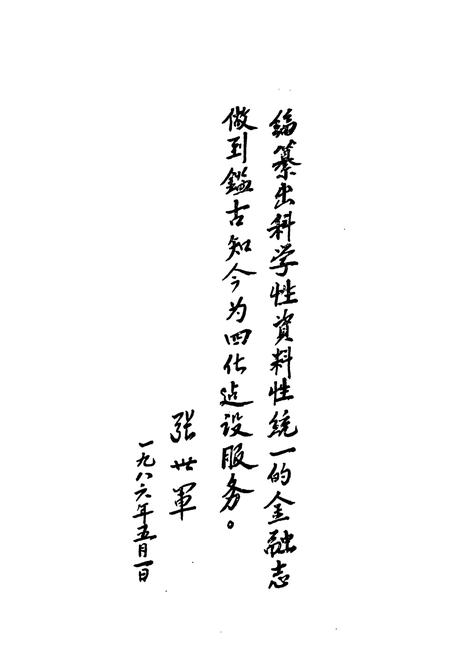 编纂出科学性資料性統一的金融志
做到鑑古知今为四化迠设服务。
张世軍
一九八六年五月一日